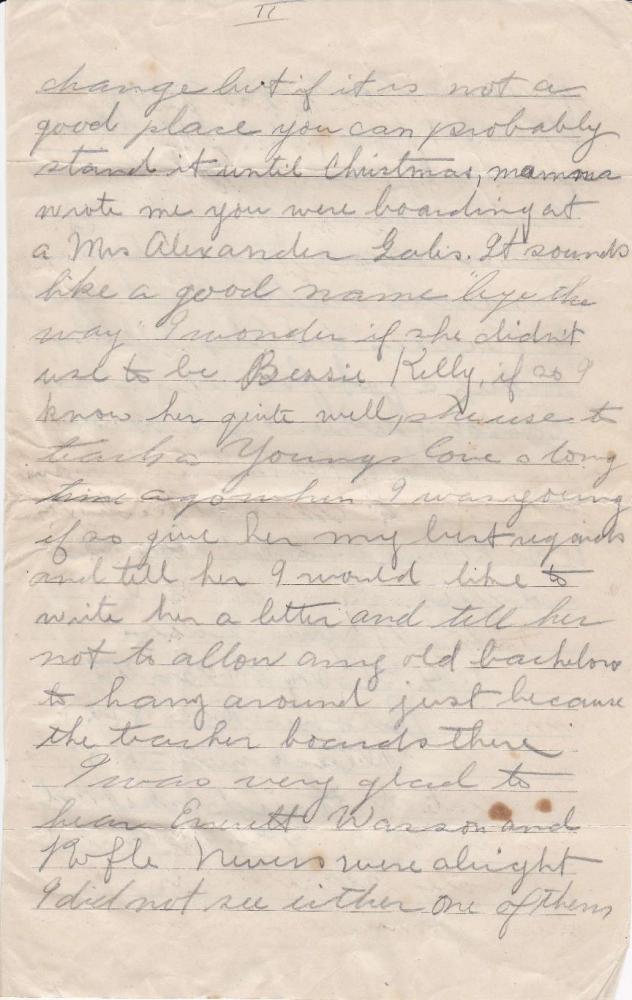 II
change but if it is not a
good place you can probably
stand it until Christmas, mamma
wrote me you were boarding at
a Mrs Alexander It sounds
like a good name "bye the
way" I wonder if she didn't
use to be Bessie Kelly, if so I
know her quite well, she use to
teach a Youngs Cove a long
time ago when I was young
if so give her my best regards
and tell her I would like to
write her a letter and tell her
not to allow any old bachelors
to hang around just because
the teacher boards there
I was very glad to
hear Everett Wasson and
Nevers were alright
I did not see either one of them